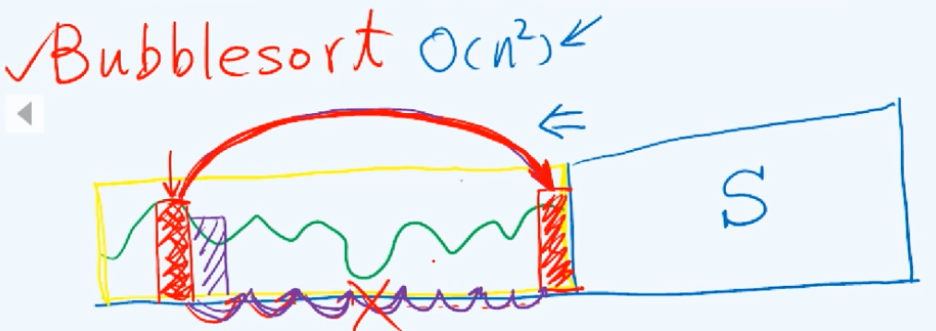 Bubblesort O(n²)
S